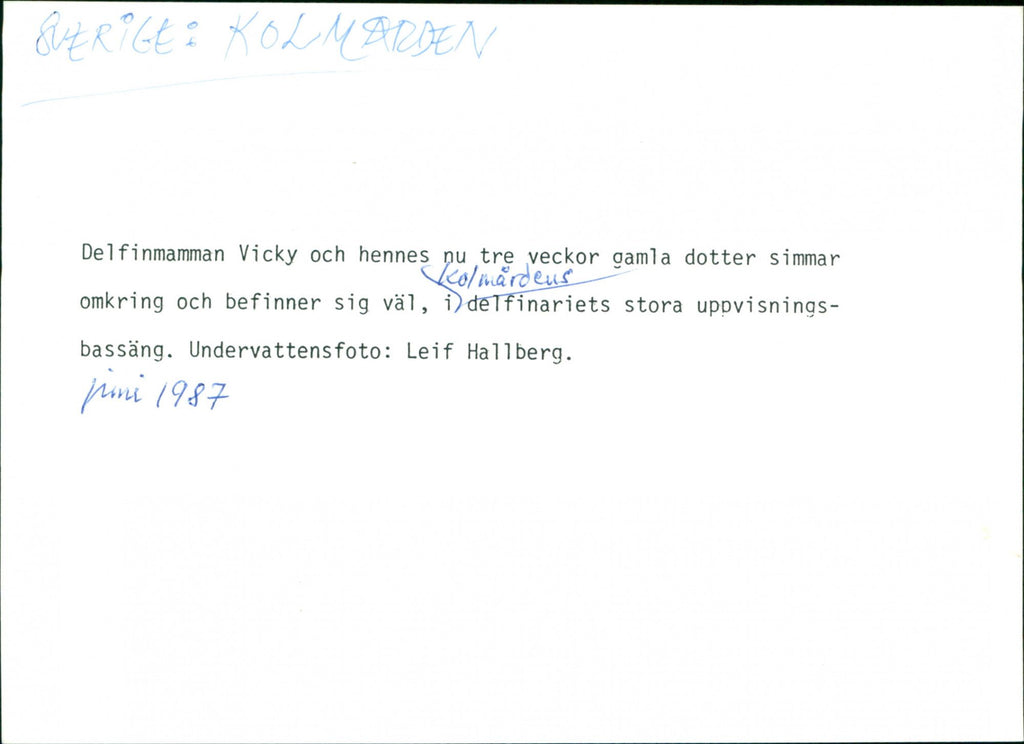 SVERIGE: KOLMÅRDEN
Delfinmamman Vicky och hennes nu tre veckor gamla dotter simmar
Kolmårdens
omkring och befinner sig väl, i delfinariets stora uppvisnings-
bassäng. Undervattensfoto: Leif Hallberg.
juni 1987